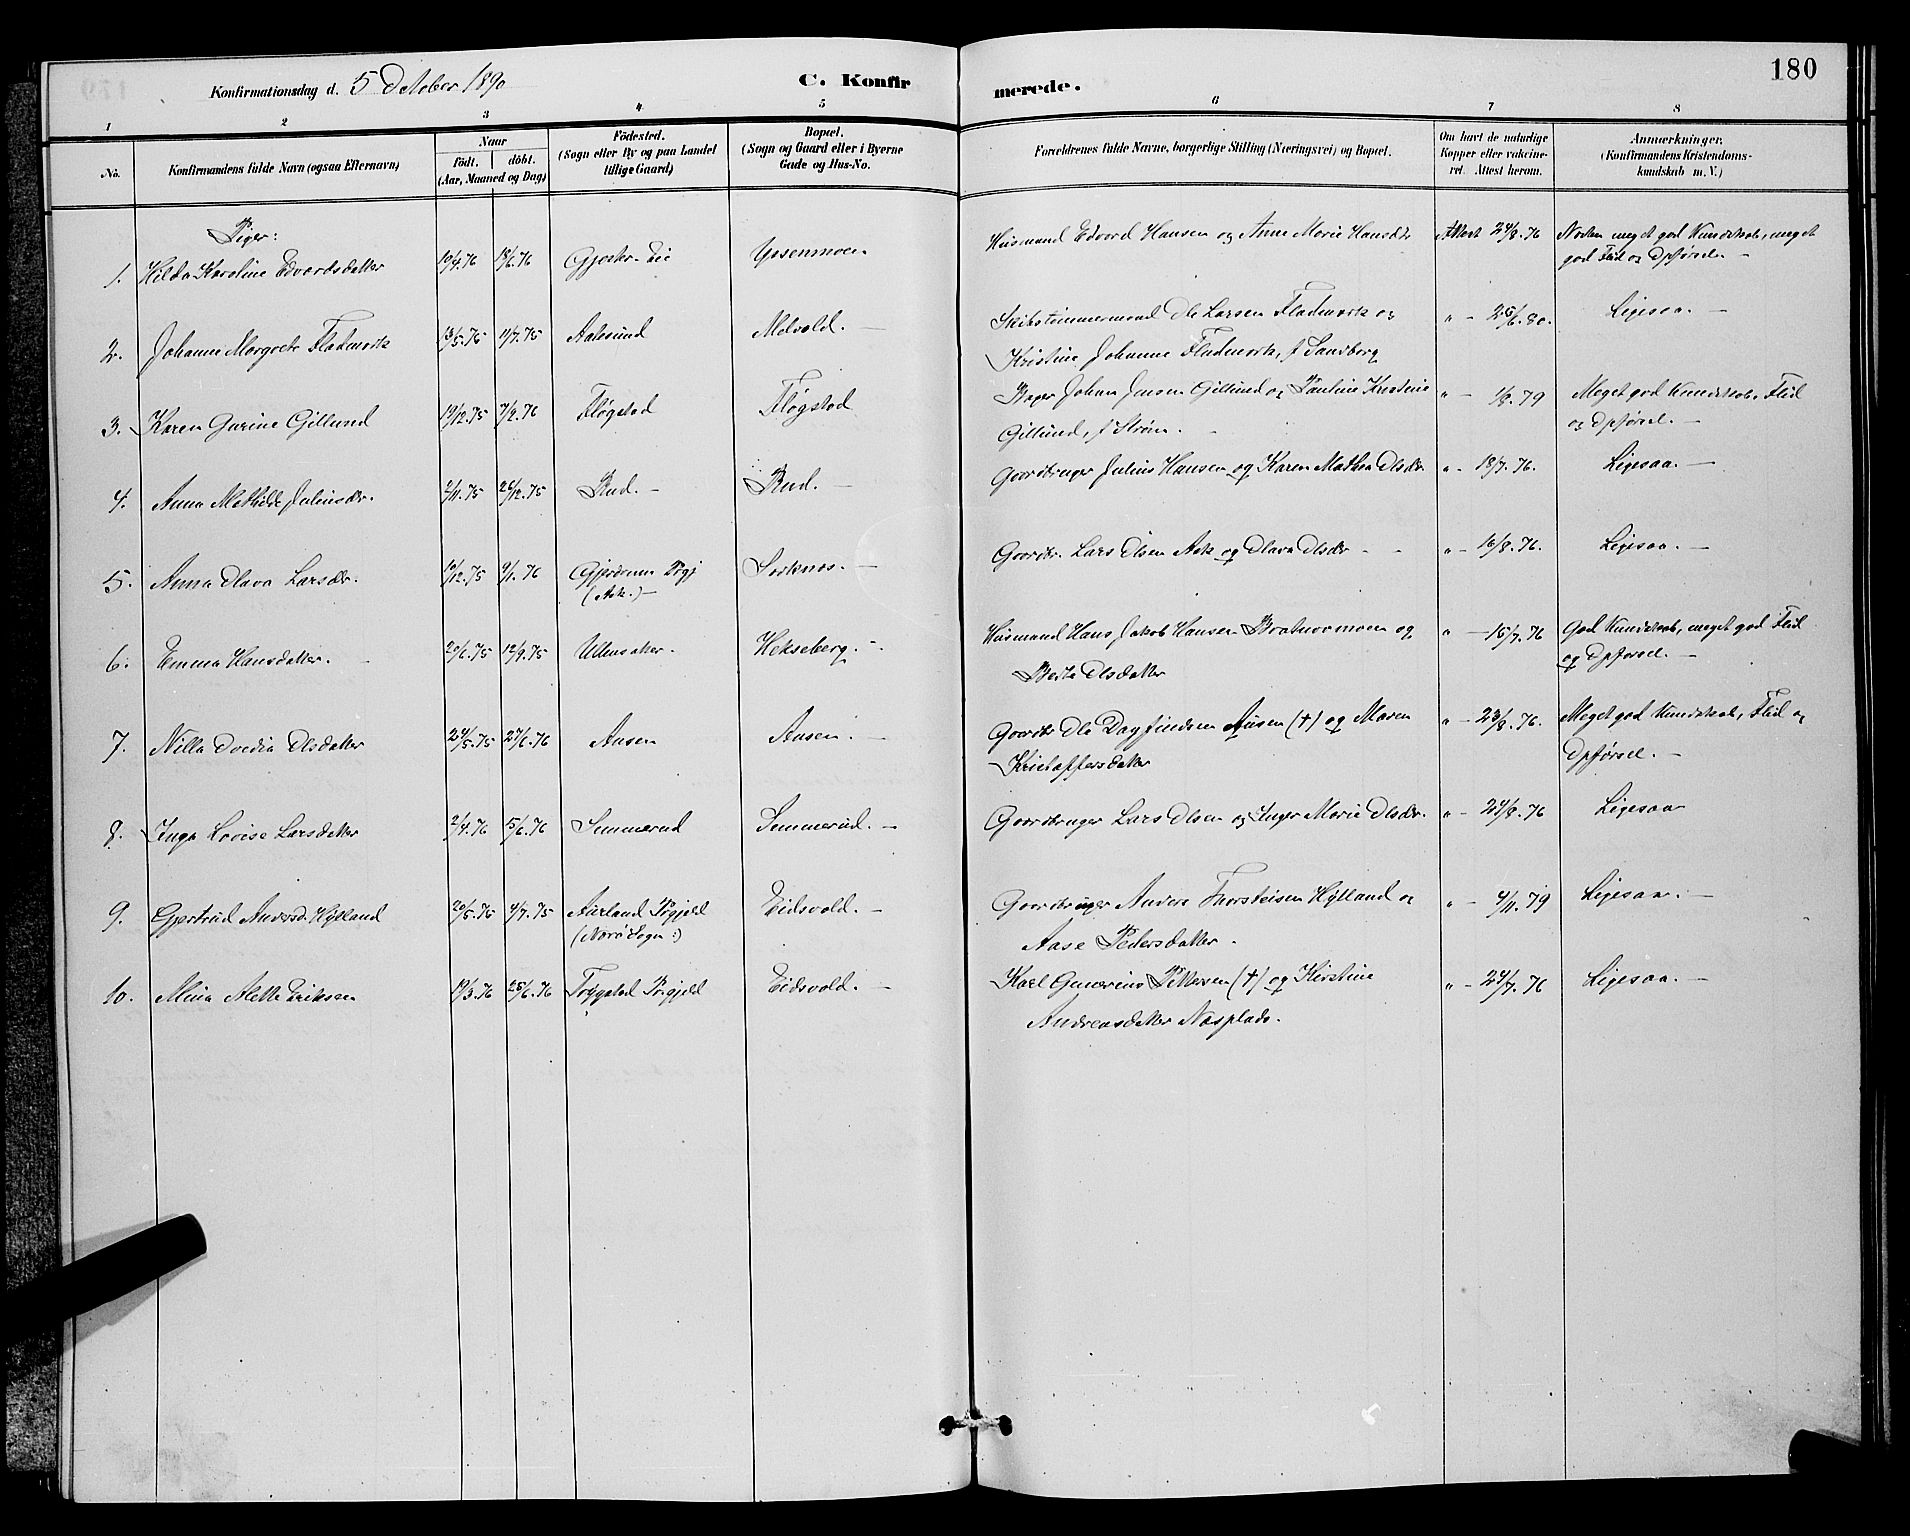 180
Konfirmationsdag d. 5 October 1890
C. Konfirmerede.
1 2 3 4 5 6 7 8
No.
Konfirmandens fulde Navn (ogsaa Efternavn)
Naar
födt. döbt.
(Aar, Maaned og Dag)
Födested.
(Sogn eller By og paa Landet
tillige Gaard)
Bopæl.
(Sogn og Gaard eller i Byerne
Gade og Hus-No.
Forældrenes fulde Navne, borgerlige Stilling (Næringsvei) og Bopæl.
Om havt de naturlige
Kopper eller vakcine-
ret. Attest herom.
Anmærkninger.
(Konfirmandens Kristendoms-
kundskab m. V.)
Piger:
1. Hilda Karoline Edvardsdatter 10/4.76 18/6.76 Gjestr. Eie Ussenmoen Husmand Edvard Hansen og Anne Marie Hansdtr Attest 24/8.76 Næsten meget god Kundskab, meget
god Flid og Opførsel. —
2. Johanne Margrete Fladmark 13/5.75 11/7.75 Aalesund Melvold. — Skibstømmermand Ole Larsen Fladmark og " — 25/6.80. Ligesaa. —
Kristine Johanne Fladmark, f Sandberg
3. Karen Gurine Gillund 19/12.75 7/2.76 Fløgstad Fløgstad Bager Johan Jensen Gillund og Pauline Kristine " — 1/9.79 Meget god Kundskab, Flid
Gillund, f Strøm. — og Opførsel. —
4. Anna Mathilde Juliusdr. 2/11.75 26/12.75 Rud. — Rud. — Gaardbruger Julius Hansen og Karen Mathea Olsdr. " — 18/7.76. Ligesaa. —
5. Anna Olava Larsdr. 10/12.75 9/1.76 Gjerdrum Prgj Sorknes. — Gaardbr. Lars Olsen Ask og Olava Olsdr — — " — 16/8.76. Ligesaa. —
(Ask.) —
6. Emma Hansdatter. — 20/6.75 12/9.75 Ullensaker. Hekseberg. — Husmand Hans Jakob Hansen og " — 15/7.76 God Kundskab, meget god Flid
Berte Olsdatter og Opførsel. —
7. Nilla Ovedia Olsdatter 24/5.75 27/6.76 Aasen Aasen. — Gaardbr Ole Dagfindsen Aasen (†) og Maren " — 23/8.76. Meget god Kundskab, Flid og
Kristoffersdatter Opførsel. —
8. Inga Lovise Larsdatter 2/4.76 5/6.76 Semmerud Semmerud. — Gaardbruger Lars Olsen og Inger Marie Olsdr. " — 24/8.76 Ligesaa
9. Gjertrud Andersd. Hylland 20/5.75 4/7.75 Aurland Prgjeld Eidsvold. — Gaardbruger Anders Thorsteisen Hylland og " — 4/11.79 Ligesaa. —
(Nordre Sogn:) Aase Pedersdatter. —
10. Mina Alette Eriksen 19/3.76 25/6.76 Trygstad Prgjeld Eidsvold. — Karl Gunerius Pettersen (†) og Kirstine " — 24/7.76 Ligesaa. —
Andreasdatter Næsplads.